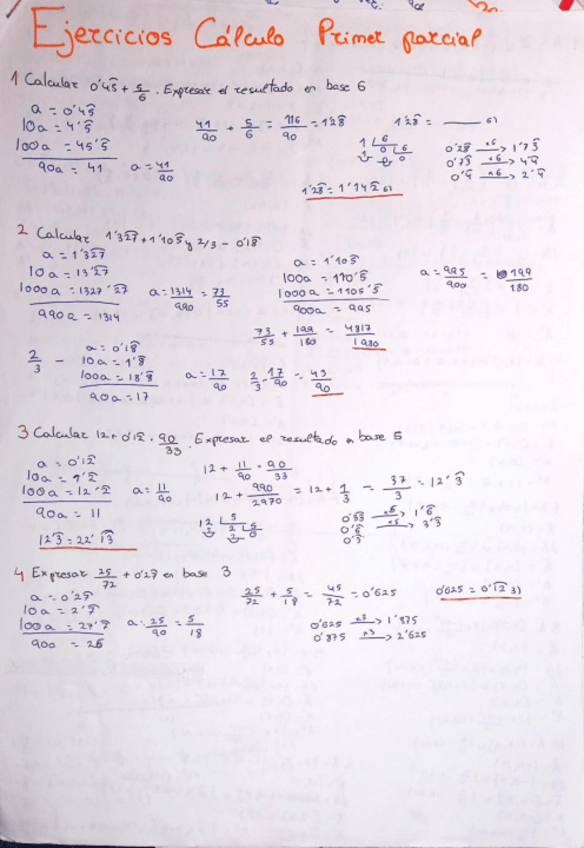 Ejercicios Cálculo Primer parcial
1 Calcular 0'45̂ + 5/6. Expresar el resultado en base 6
a = 0'45̂
10a = 4'5̂
100a = 45'5̂
90a = 41 a = 41/90
41/90 + 5/6 = 116/90 = 1'28̂
1'28̂ = ——— 6)
1 6 0 6 0
0'28̂ x6→ 1'73̂
0'73̂ x6→ 4'4̂
0'4̂ x6→ 2'6̂
1'28̂ = 1'142̂ 6)
2 Calcular 1'32͡7 + 1'105̂ y 2/3 - 0'18̂
a = 1'32͡7
10a = 13'2͡7
1000a = 1327'2͡7
990a = 1314
a = 1314/990 = 73/55
a = 1'105̂
100a = 110'5̂
1000a = 1105'5̂
900a = 995
a = 995/900 = 199/180
73/55 + 199/180 = 4817/1980
2/3 -
a = 0'18̂
10a = 1'8̂
100a = 18'8̂
90a = 17
a = 17/90
2/3 - 17/90 = 43/90
3 Calcular 12 + 0'12̂ · 90/33. Expresar el resultado en base 5
a = 0'12̂
100a = 12'2̂
90a = 11
a = 11/90
12 + 11/90 · 90/33
12 + 990/2970 = 12 + 1/3 = 37/3 = 12'3̂
12 5 2 5
x5→ 1'6̂
x5→ 3'3̂
12'3̂ = 22'1͡3
4 Expresar 25/72 + 0'27̂ en base 3
a = 0'27̂
10a = 2'7̂
100a = 27'7̂
900 = 25
a = 25/90 = 5/18
25/72 + 5/18 = 45/72 = 0'625
0'625 x3→ 1'875
0'875 x3→ 2'625
0'625 = 0'1͡2 3)